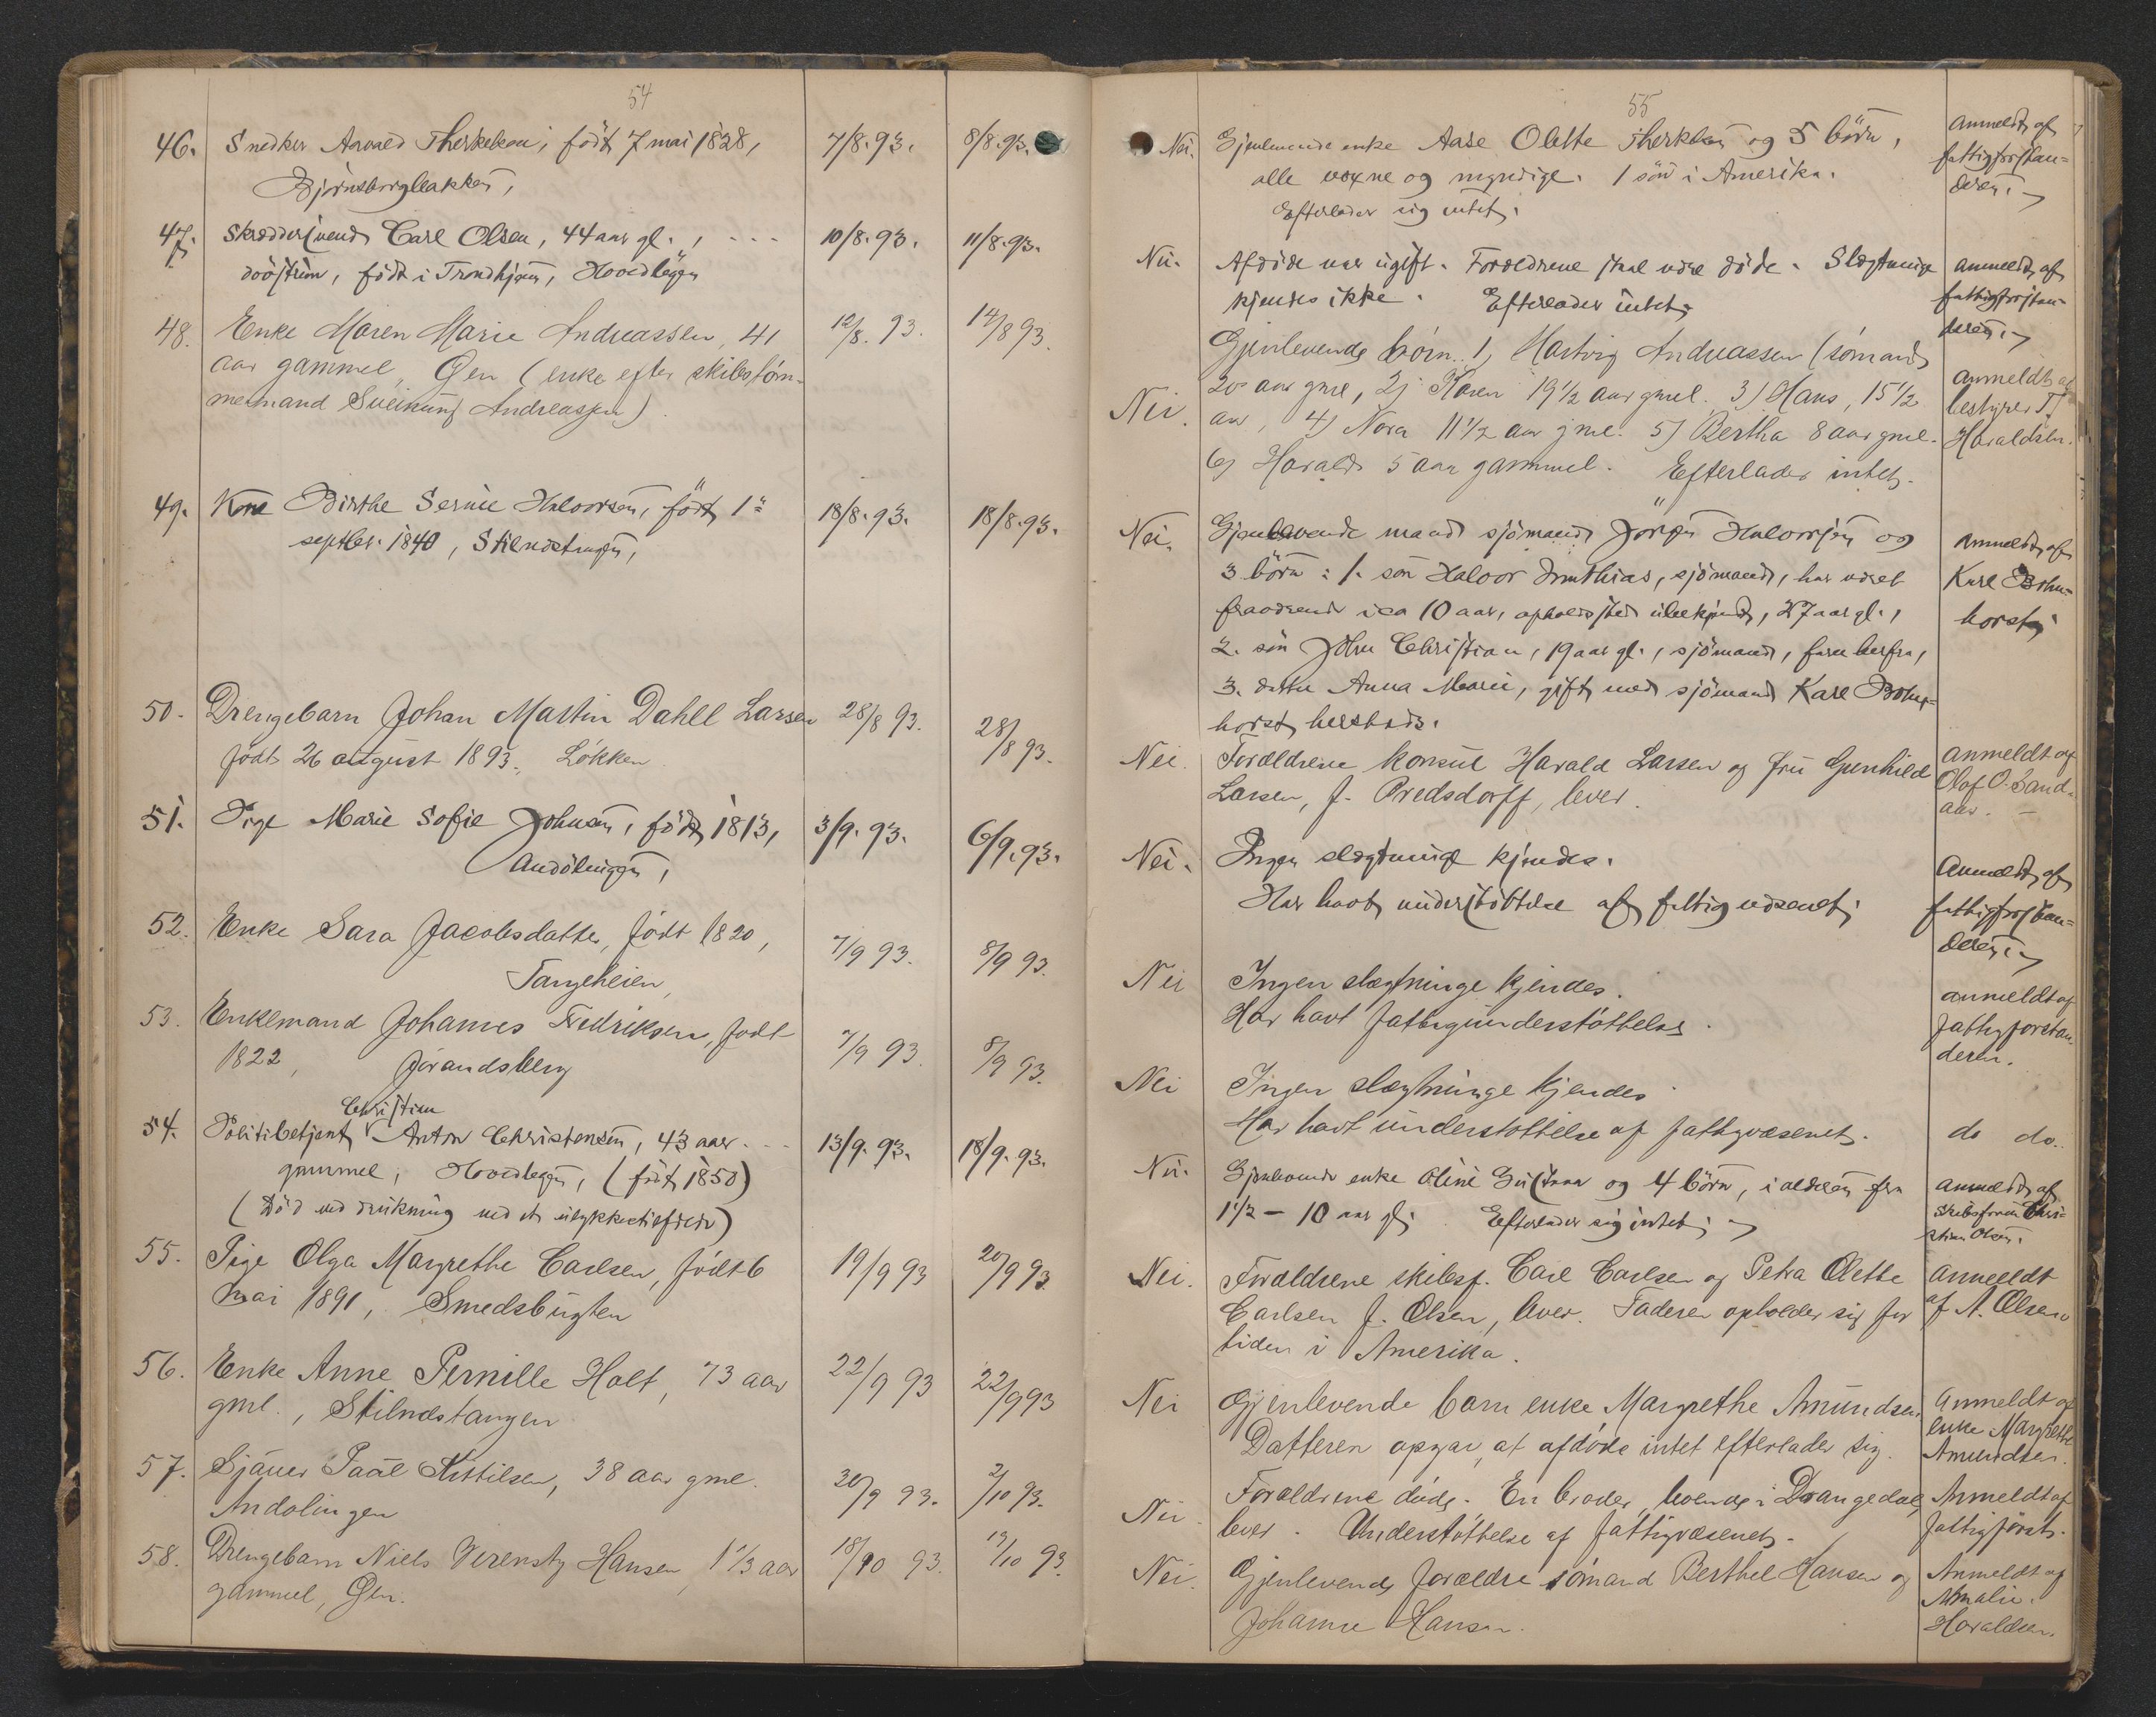 54
46. Snedker Aavald Therkelsen, född 7 mai 1828, 7/8.93. 8/8.93.
Bjørnsborgbakken,
47. Skræddersvend Carl Olsen, 44 aar gl., 10/8.93. 11/8.93.
född i Trondhjem, Hovedbögen
48. Enke Maren Marie Andreassen, 41 12/8. 93. 14/8 93.
aar gammel, Øen (enke efter skibstøm-
mermand Andreassen).
49. Kone Birthe Halvorsen, född 1ste 18/8.93. 18/8.93.
septbr. 1840, Stilnestangen,
50. Drengebarn Johan Martin Dahll Larsen 28/8 93. 28/8 93.
født 26 august 1893. Løkken
51. Pige Marie Sofie Johnsen, född 1813, 3/9.93. 6/9.93.
Andölingen,
52. Enke Sara Jacobsdatter, født 1820, 7/9 93. 8/9 93.
Tangeheien,
53. Enkemand Johannes Fredriksen, født 7/9 93. 8/9 93.
1822, Jørandsberg
Christian
54. Politibetjent Anton Christensen, 43 aar 13/9.93. 18/9.93.
gammel, (född 1850)
(Död ved drukning ved et ulykkestilfælde)
55. Pige Olga Margrethe Carlsen, født 6 19/9 93 20/9 93.
mai 1891, Smedsbugten
56. Enke Anne Pernille Holt, 73 aar 22/9 93 22/9 93
gml., Stilnestangen
57. Sjauer Paal Kittilsen, 38 aar gml. 30/9 93. 2/10 93.
Andølingen
58. Drengebarn Niels Hansen, 1 1/3 aar 18/10 93. 19/10 93.
gammel, Øen.
55
Nei. Gjenlevende enke Aase Olette Therkelsen og 5 börn, Anmeldt af
alle voxne og myndige. 1 sön i Amerika. fattigforstan-
Efterlader sig intet. deren.
Nei. Afdöde var ugift. Forældrene skal være döde. Slægtninge Anmeldt af
kjendes ikke. Efterlader intet. fattigforstan-
deren.
Gjenlevende børn. 1) Hartvig Andreassen (sømand)
20 aar gml, 2) Karen 19 1/2 aar gml. 3) Hans, 15 1/2 anmeldt af
Nei. aar, 4) Nora 11 1/2 aar gml. 5) Bertha 8 aar gml. bestyrer T.
6) Harald 5 aar gammel. Efterlader intet. Haraldsen.
Nei. Gjenlevende mand sjömand Jörgen Halvorsen og Anmeldt af
3 börn: 1. sön Halvor Mathias, sjömand, har været Karl
fraværende i ca 10 aar, opholdssted ubekjendt, 27 aar gl., horst
2. sön John Christian, 19 aar gl., sjömand, herfra,
3. datter Anna Marie, gift med sjömand Karl
horst hersteds.
Nei. Forældrene konsul Harald Larsen og fru Gunhild Anmeldt af
Larsen, f. Predsdorff, lever. Olaf O. Sand-
aas.
Nei. Ingen slægtninge kjendes. Anmeldt af
Har havt understöttelse af fattigvæsenet. fattigforstan-
deren.
Nei Ingen slægtninge kjendes. anmeldt af
Har havt fattigunderstøttelse. fattigforstan-
deren.
Nei Ingen slægtninge kjendes
Har havt understøttelse af fattigvæsenet. do do.
Nei. Gjenlevende enke Oline Gustava og 4 börn, i alderen fra Anmeldt af
1 1/2 – 10 aar gl. Efterlader sig intet. Chri-
stian Olsen.
Nei. Forældrene skibsf. Carl Carlsen og Petra Olette Anmeldt
Carlsen f. Olsen, lever. Faderen opholder sig for af A. Olsen
tiden i Amerika.
Nei Gjenlevende barn enke Margrethe Amundsen, Anmeldt af
Datteren opgav, at afdøde intet efterlader sig. enke Margrethe
Amundsen.
Forældrene døde. En broder, boende i Drangedal, Anmeldt af
Nei lever. Understøttelse af fattigvæsenet. fattigforst.
Nei. Gjenlevende forældre sømand Berthel Hansen og Anmeldt af
Johanne Hansen. Amalie
Haraldsen.